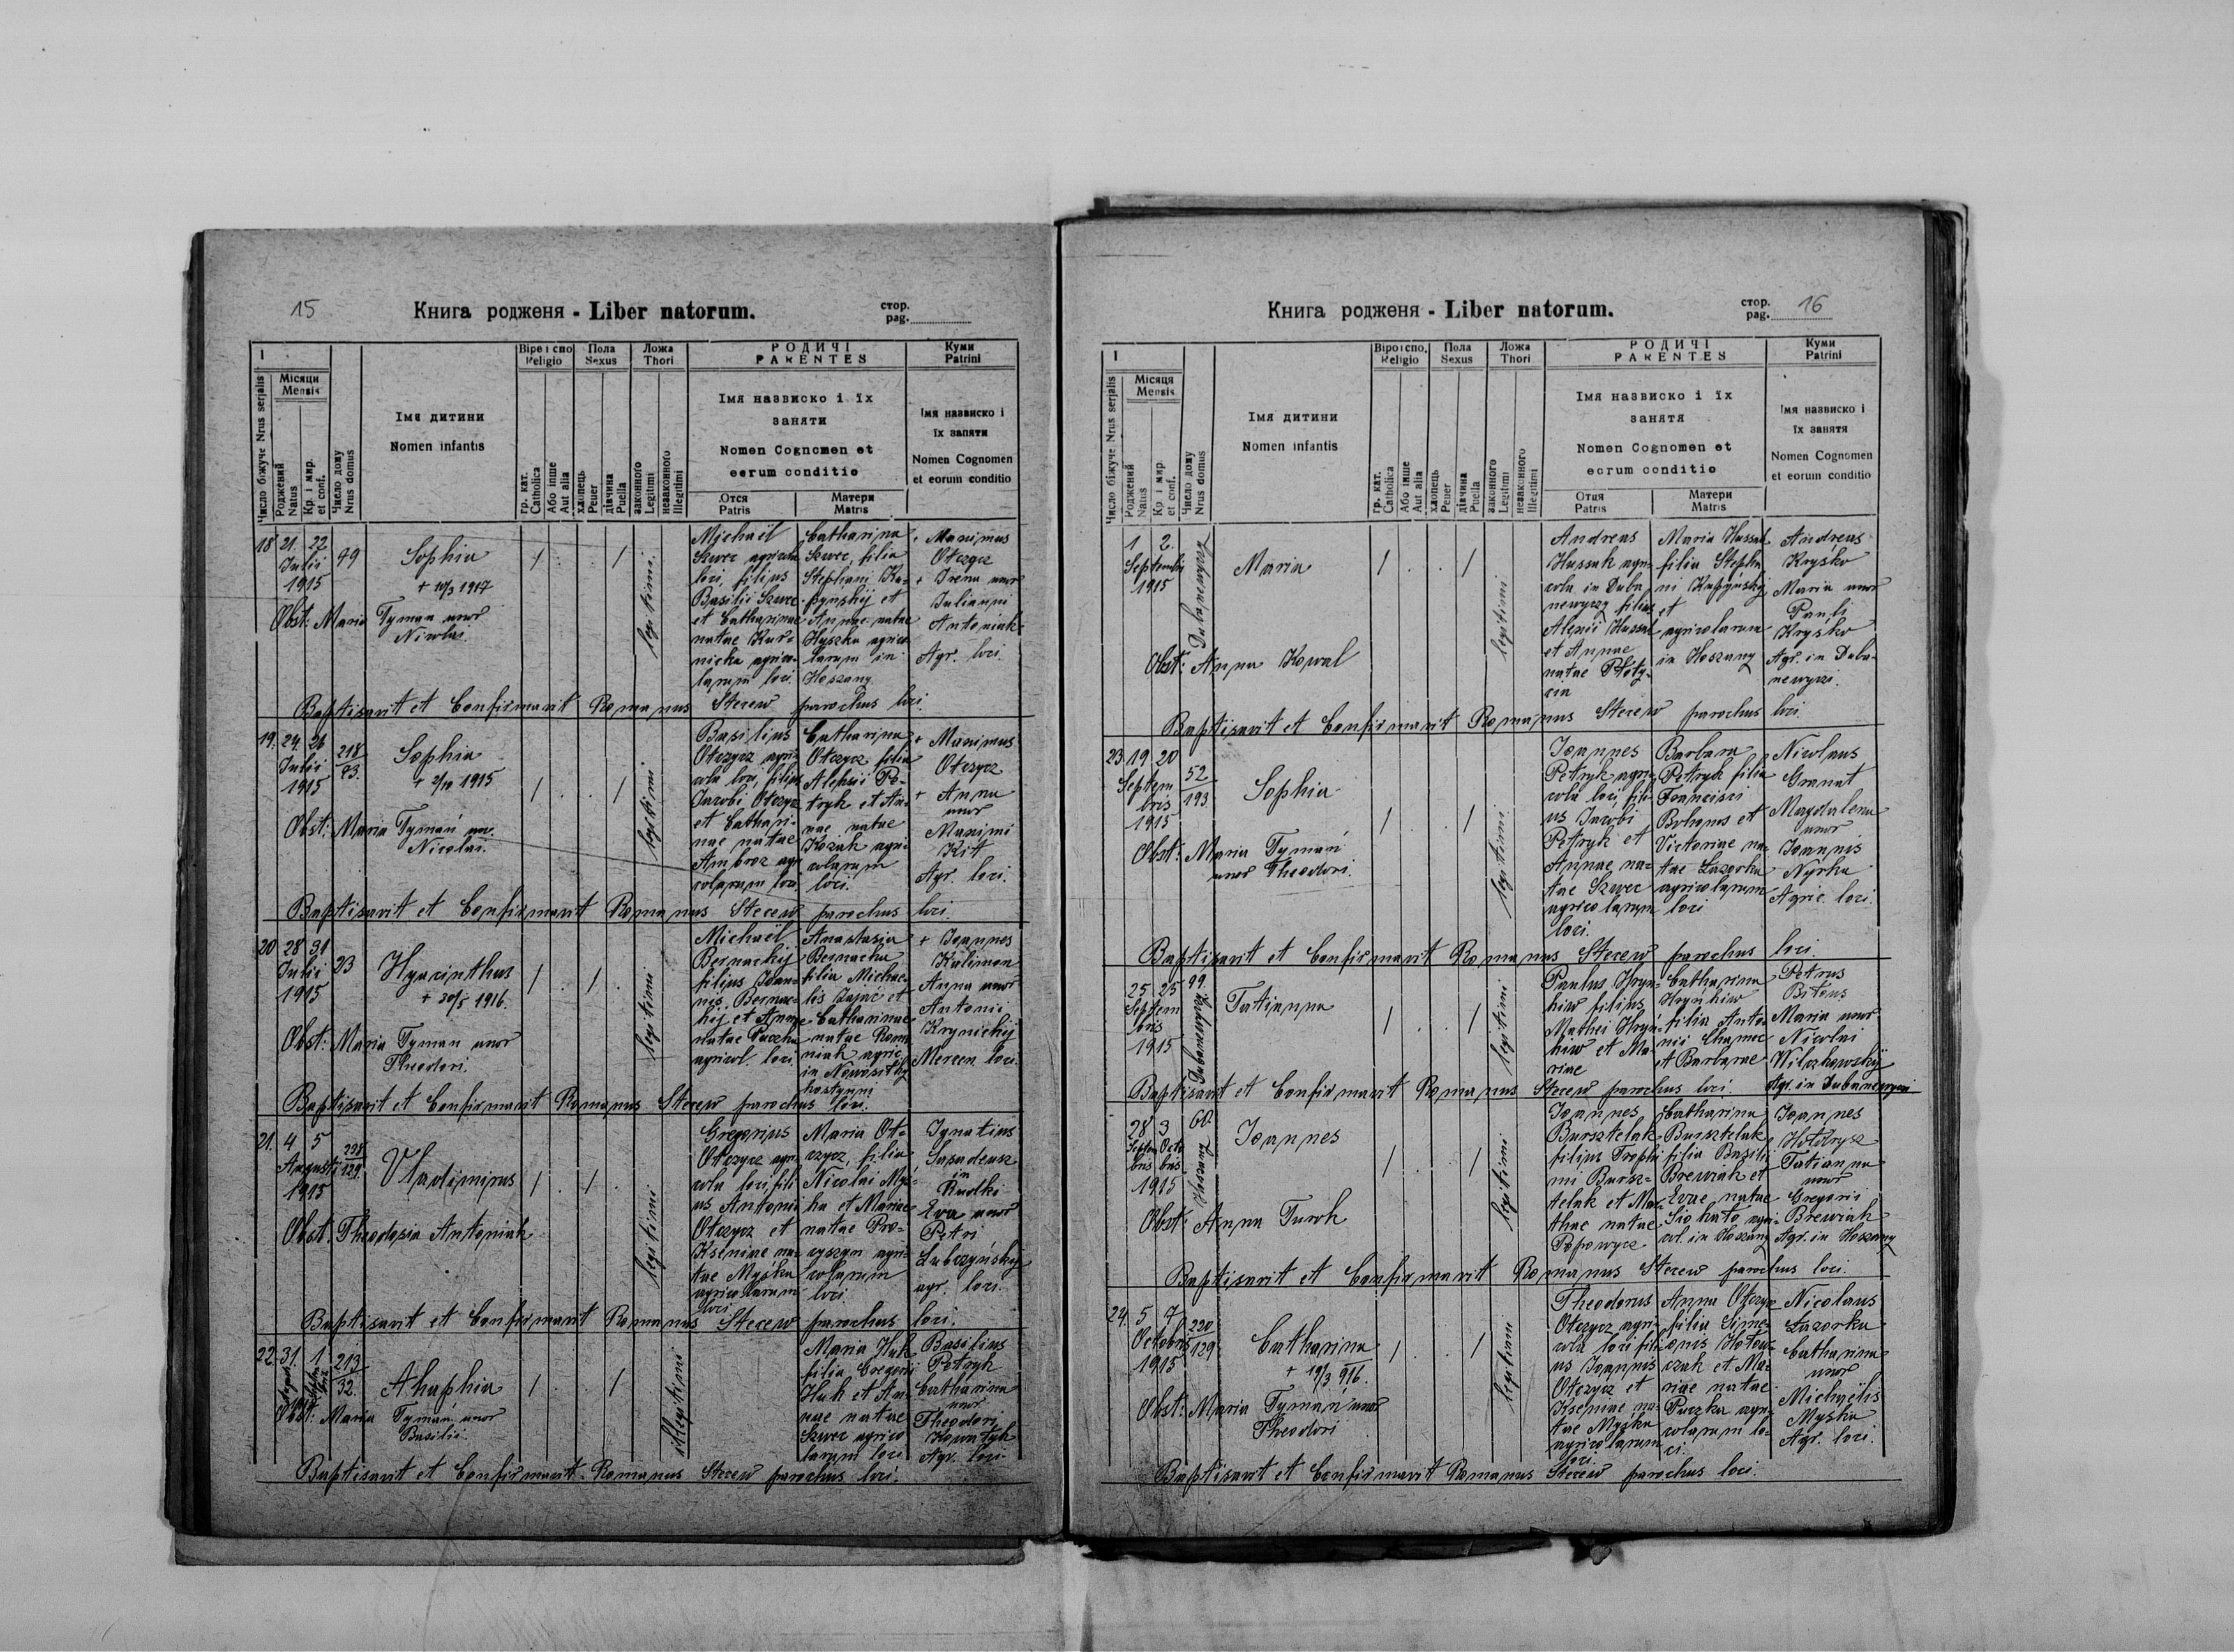 15
Книга родженя - Liber natorum.
стор.
pag.
1
Віра і спо
Religio
Пола
Sexus
Ложа
Thori
РОДИЧІ
PARENTES
Куми
Patrini
Число біжуче Nrus serjalis
Місяци
Mensis
Роджений
Natus
Кр. і мир.
et conf.
Число дому
Nrus domus
Імя дитини
Nomen infantis
гр. кат.
Catholica
Або інше
Aut alia
хлопець
Peuer
дівчина
Puella
законного
Legitimi
незаконного
Illegitimi
Імя назвиско і їх
заняти
Nomen Cognomen et
eorum conditio
Отця
Patris
Матери
Matris
Імя назвиско і
їх заняти
Nomen Cognomen
et eorum conditio
18 21. 22
Julii
1915
Sophia
+ 10/3 1917
Obst: Maria Tyman uxor
Nicolai
legitimi
Michaël
Szwec agricola
loci, filius
Basilii Szwec
et Catharinae
natae
larum loci.
Catharina
Szwec, filia
Stephani
et
Annae natae
Hyszka agrico
larum in
Hoszany
Maximus
Otczycz
Irena uxor
Julianni
Antoniak
Agr. loci.
Baptisavit et Confirmavit Romanus Stecew parochus loci.
19. 24. 26
Julii
1915
218
83.
Sophia
1915
Obst: Maria Tymań ux.
Nicolai.
legitimi
Basilius
Otczycz agri
cola loci, filius
Jacobi Otczycz
et Cathari-
nae natae
Ambroz agri
colarum loci
Catharina
Otczycz filia
Alexii Pe-
tryk et An-
nae natae
Kozak agri
colarum
loci.
Maximus
Otczycz
+ Anna
uxor
Maximi
Kit
Agr. loci.
Baptisavit et Confirmavit Romanus Stecew parochus loci.
20 28 31
Julii
1915
23
Hyacinthus
+ 30/5 1916.
Obst: Maria Tyman uxor
Theodori.
legitimi
Michaël
Bernackij
filius Joan-
nis Bernac-
kij et Annae
natae Puczka
agricol. loci
Anastasia
Bernacka
filia Michae-
lis Zając et
Catharinae
natae Roma
niak agric.
in
+ Joannes
Kuliman
Anna uxor
Antonii
Krynickij
Mercen. loci.
Baptisavit et Confirmavit Romanus Stecew parochus loci.
21. 4 5
Augusti
1915
129
Vladimirus
Obst. Theodosia Antoniak
legitimi
Gregorius
Otczycz agri
cola loci fili
us Antonii
Otczycz et
Kseniae na-
tae Myśka
agricolarum
loci
Maria Ot-
czycz, filia
Nicolai Myś
ka et Mariae
natae Pro-
cyszyn agri-
colarum
loci
Ignatius
in
Rudki
Eva uxor
Petri
Lubczyńskij
agr. loci.
Baptisavit et Confirmavit Romanus Stecew parochus loci.
22. 31. 1
213
32.
Ahaphia
Obst: Maria Tymań uxor
Basilii
illegitimi
Maria Huk
filia Gregorii
Huk et An-
nae natae
Szwec agrico
larum loci
Basilius
Petryk
Catharina
uxor
Theodori
Agr. loci
Baptisavit et Confirmavit Romanus Stecew parochus loci.
Книга родженя - Liber natorum.
стор.
pag. 16
1
Віроіспо.
Religio
Пола
Sexus
Ложа
Thori
РОДИЧІ
PARENTES
Куми
Patrini
Число біжуче Nrus serjalis
Місяця
Mensis
Роджений
Natus
Кр. і мир.
et conf.
Число дому
Nrus domus
Імя дитини
Nomen infantis
гр. кат.
Catholica
Або інше
Aut alia
хлопець
Peuer
дівчина
Puella
законного
Legitimi
незаконного
Illegitimi
Імя назвиско і їх
занятя
Nomen Cognomen et
eorum conditio
Отця
Patris
Матери
Matris
Імя назвиско і
їх занятя
Nomen Cognomen
et eorum conditio
1 2.
Septembris
1915
Maria
Obst: Anna Kowal
legitimi
Andreas
Hussak agri-
cola in Duba
newyczy filius
Alexii Hussak
et Annae
natae
Maria Hussak
filia Stepha
ni
et
agricolarum
in Hoszany
Andreas
Krysko
Maria uxor
Pauli
Krysko
Agr. in Duba-
newyczi.
Baptisavit et Confirmavit Romanus Stecew parochus loci.
23. 19. 20
Septem
bris
1915
52
193.
Sophia
Obst: Maria Tymań
uxor Theodori.
legitimi
Joannes
Petryk agri-
cola loci, fili-
us Jacobi
Petryk et
Annae na-
tae Szwec
agricolarum
loci.
Barbara
Petryk filia
Francisci
Bohonos et
Victoriae na-
tae Lazorka
agricolarum
loci
Nicolaus
Granat
Magdalena
uxor
Joannis
Nyrka
Agric. loci.
Baptisavit et Confirmavit Romanus Stecew parochus loci.
25. 25
Septem
bris
1915
99.
Tatianna
legitimi
Paulus Hryn-
kiw filius
Mathei Hryń-
kiw et Ma-
riae
Catharina
Hryńkiw
filia Anto
nii
et Barbarae
Petrus
Bitous
Maria uxor
Nicolai
Agr. in Dubanewyczi
Baptisavit et Confirmavit Romanus Stecew parochus loci.
28 3
Septem Octo
bris bris
1915
60
Hoszany
Joannes
Obst: Anna Turok
legitimi
Joannes
Bursztelak
filius Trophi
mi Bursz-
telak et Mar-
thae natae
Popowycz
Catharina
Bursztelak
filia Basilii
Brewiak et
Evae natae
agri-
col. in Hoszany
Joannes
Tatianna
uxor
Gregorii
Brewiak
Agr. in Hoszany
Baptisavit et Confirmavit Romanus Stecew parochus loci.
24. 5 7
Octobris
1915
220
129
Catharina
+ 19/3 916.
Obst: Maria Tymań uxor
Theodori
legitimi
Theodorus
Otczycz agri-
cola loci fili
us Joannis
Otczycz et
Kseniae na-
tae Myśka
agricolarum
loci.
Anna Otczycz
filia Sime-
onis
et Ma-
riae natae
Puczka agri-
colarum lo-
ci.
Nicolaus
Lazorka
Catharina
uxor
Michaëlis
Myśka
Agr. loci.
Baptisavit et Confirmavit Romanus Stecew parochus loci.